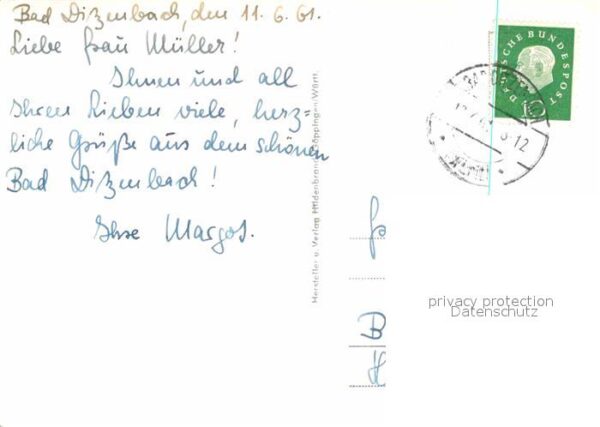 Bad Ditzenbach, den 11.6.61.
Liebe Frau Müller!
Ihnen und all
Ihren Lieben viele, herz=
liche Grüße aus dem schönen
Bad Ditzenbach!
Ihre Margot.
Hersteller u. Verlag Hildenbrand, Göppingen/Württ.
DEUTSCHE BUNDESPOST
10
-12
Fr
B
H
privacy protection
Datenschutz